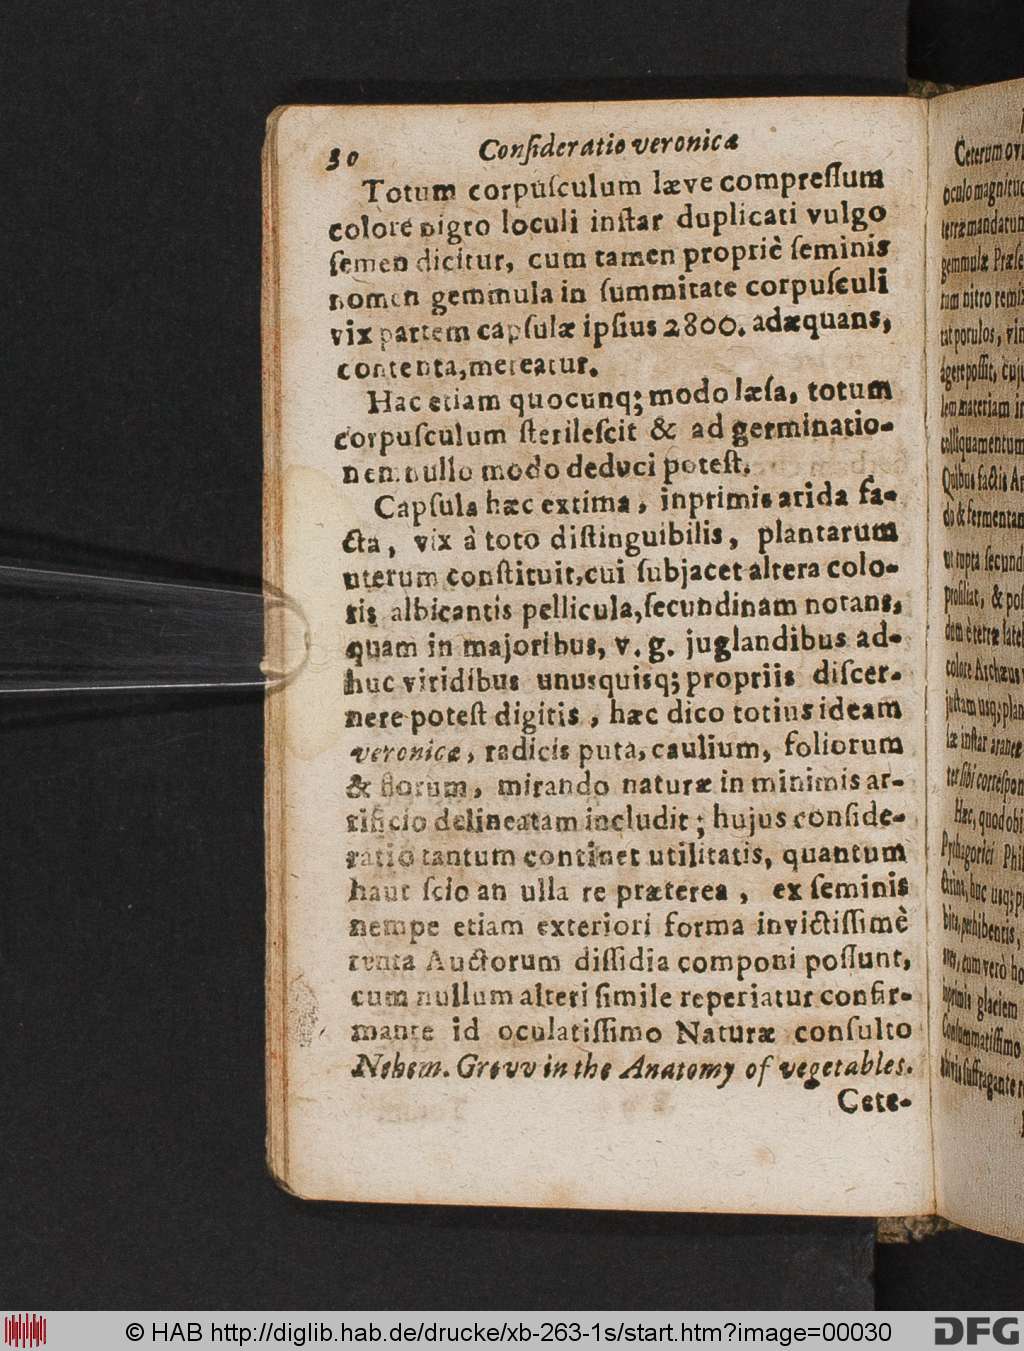 30 Consideratio veronicæ
Totum corpuſculum læve compreſſum
colore nigro loculi inſtar duplicati vulgo
ſemen dicitur, cum tamen propriè ſeminis
nomen gemmula in ſummitate corpuſculi
vix partem capſulæ ipſius 2800. adæquans,
contenta, mereatur.
Hac etiam quocunq; modo læſa, totum
corpuſculum ſterileſcit & ad germinatio-
nem nullo modo deduci poteſt.
Capſula hæc extima, inprimis arida fa-
cta, vix à toto diſtinguibilis, plantarum
uterum conſtituit, cui ſubjacet altera colo-
ris albicantis pellicula, ſecundinam notans,
quam in majoribus, v. g. juglandibus ad-
huc viridibus unusquisq; propriis diſcer-
nere poteſt digitis, hæc dico totius ideam
veronicæ, radicis puta, caulium, foliorum
& florum, mirando naturæ in minimis ar-
tificio delineatam includit; hujus conſide-
ratio tantum continet utilitatis, quantum
haut ſcio an ulla re præterea, ex ſeminis
nempe etiam exteriori forma invictiſſimè
tenta Auctorum diſſidia componi poſſunt,
cum nullum alteri ſimile reperiatur confir-
mante id oculatiſſimo Naturæ conſulto
Nehem. Grevv in the Anatomy of vegetables.
Cete-
Ceterum
oculo
gemmulæ
tum nitro
tat porulos,
agere poſſit,
lem materiam
colliquamentum
Quibus factis
do & fermentan
ut rupta ſecund
proſiliat, &
dum è terræ
colore Archæus
Hæc, quod obi
Pythagorici Phil
bita, perhibentis,
inprimis glaciem
Conſummatiſſimo
© HAB http://diglib.hab.de/drucke/xb-263-1s/start.htm?image=00030
DFG